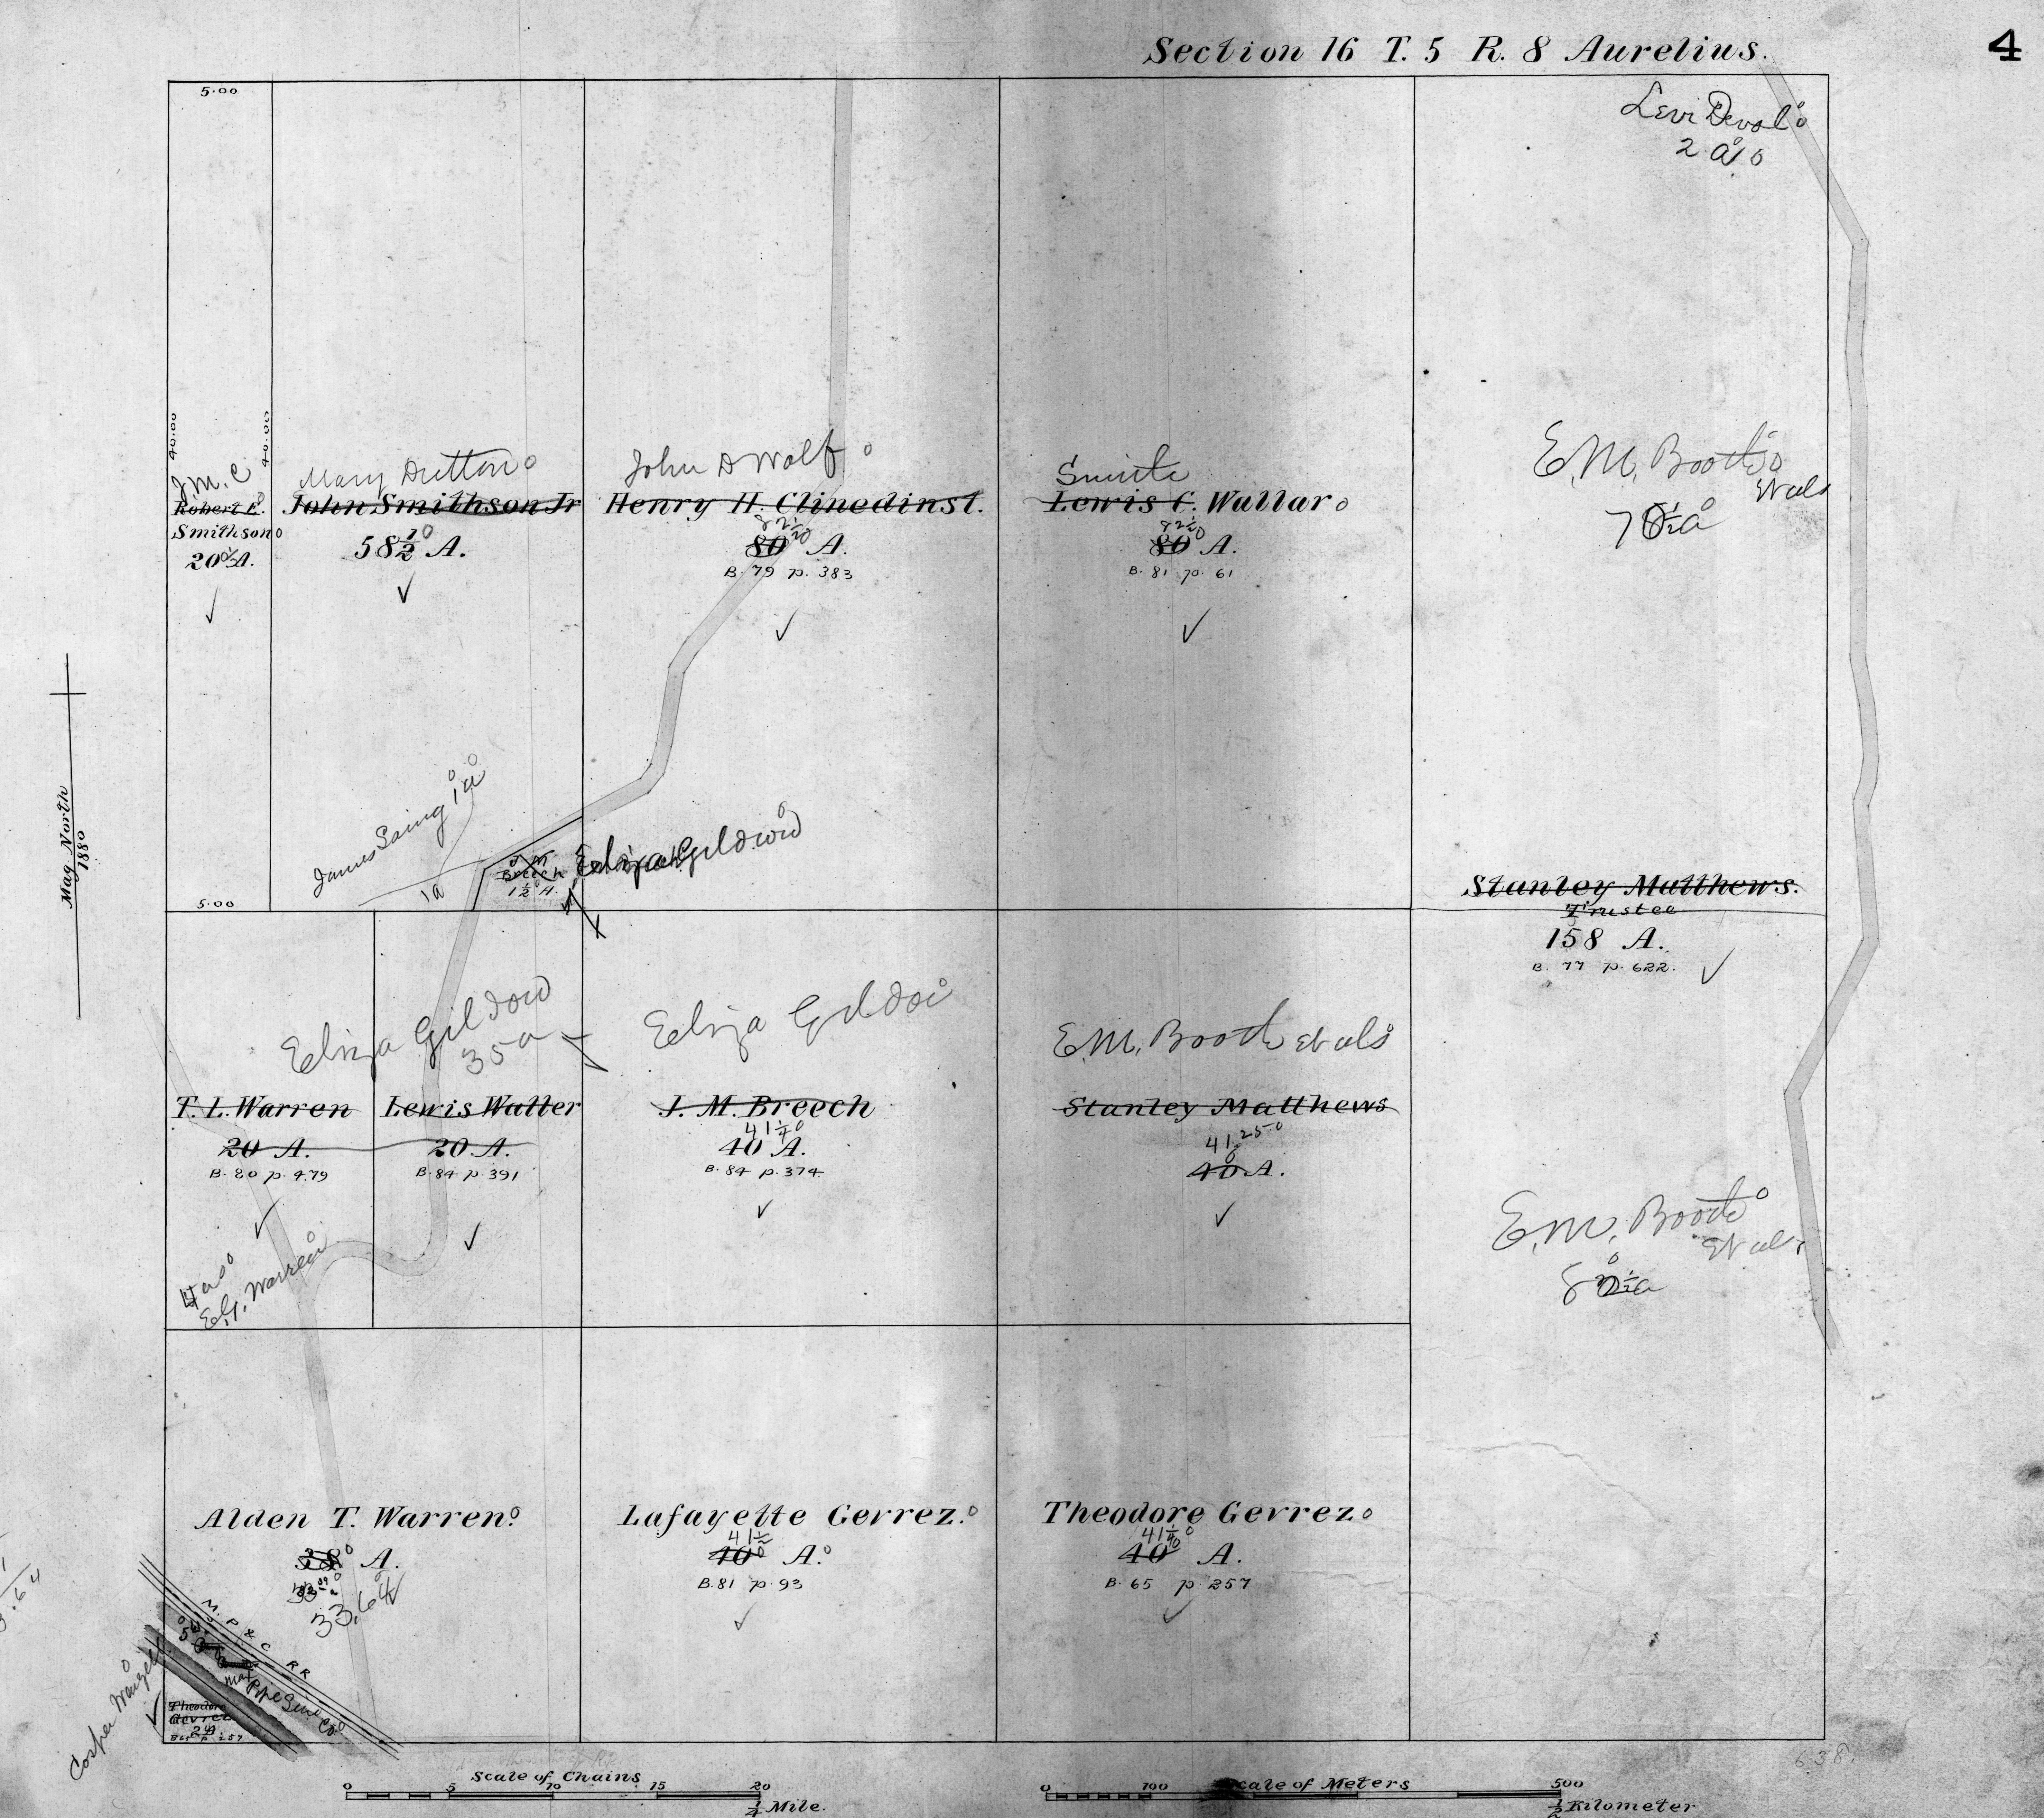 Section 16 T. 5 R. 8 Aurelius.
4
5.00
Levi Devol
2 a
40.00
40.00
J.M.C
Robert E.
Smithson
20 A.
Mary Dutton
John Smithson Jr
58½ A.
John D Wolf
Henry H. Clinedinst.
82½
80 A.
B. 79 p. 383
Smith
Lewis C. Wallar
82½
80 A.
B. 81 p. 61
E.M. Booth
et als
Mag North
1880
James
1a
1a
J M
Breech
1½ A.
Eliza Gildow
5.00
Stanley Matthews.
Trustee
158 A.
B. 77 p. 622.
Eliza Gildow
35 a
T. L. Warren
20 A.
B. 80 p. 479
Lewis Walter
20 A.
B. 84 p. 391
Eliza Gildow
J. M. Breech
41¼
40 A.
B. 84 p. 374
E.M. Booth et als
Stanley Matthews
41.25
40 A.
E.M. Booth
et als
Warren
Alden T. Warren
38 A.
33.64
Lafayette Gevrez.
41½
40 A.
B. 81 p. 93
Theodore Gevrez
41¼
40 A.
B. 65 p. 257
M. P & C RR
Pipe Line Co
Theodore
Gevrez
2 A.
B 65 p. 257
638.
Scale of Chains
0 5 10 15 20
¼ Mile.
Scale of Meters
0 100 500
½ Kilometer